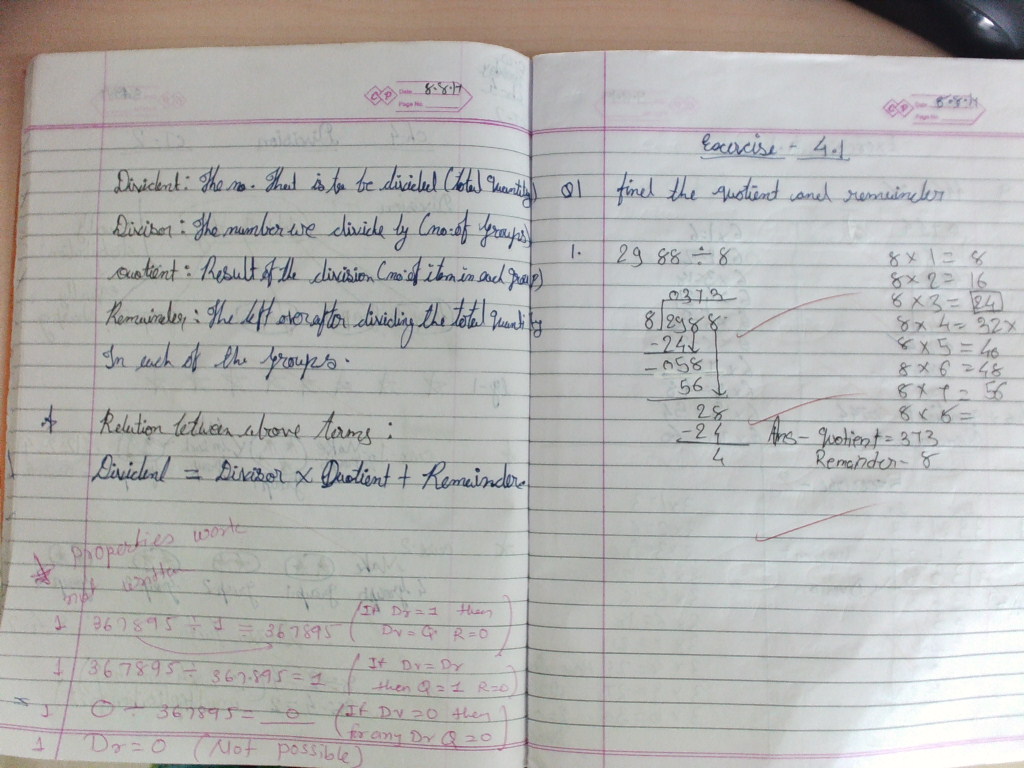 CP Date 8.8.17
Page No.
Divident: The no. That is to be divided (total quantity)
Divisor: The number we divide by (no. of groups)
Quotient: Result of the division (no. of item in each group)
Remainder: The left over after dividing the total quantity
In each of the groups.
Relation between above terms:
Dividend = Divisor × Quotient + Remainder
properties work
not written
1 367895 ÷ 1 = 367895 (If Dr=1 then
Dv=Q R=0)
1 367895 ÷ 367895 = 1 (If Dv=Dr
then Q=1 R=0)
1 0 ÷ 367895 = 0 (If Dv=0 then
for any Dr Q=0)
1 Dr=0 (Not possible)
CP Date 8.8.17
Page No.
Exercise - 4.1
Q1 find the quotient and remainder
1. 2988 ÷ 8
0373
8 2988
-24
-058
56
28
-24
4
8 × 1 = 8
8 × 2 = 16
8 × 3 = 24
8 × 4 = 32 ×
8 × 5 = 40
8 × 6 = 48
8 × 7 = 56
8 × 8 =
Ans - Quotient = 373
Remander - 8